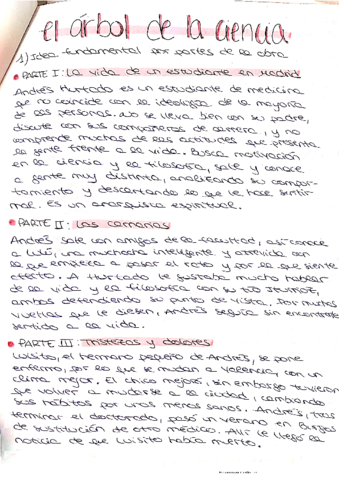 el árbol de la ciencia
1) Idea fundamental por partes de la obra
• PARTE I: La vida de un estudiante en Madrid
Andrés Hurtado es un estudiante de medicina
que no coincide con la ideología de la mayoría
de las personas. No se lleva bien con su padre,
discute con sus compañeros de carrera, y no
comprende muchas de las actitudes que presenta
la gente frente a la vida. Busca motivación
en la ciencia y la filosofía, sale y conoce
a gente muy distinta, analizando su compor-
tamiento y descartando lo que le hace sentir
mal. Es un anarquista espiritual.
• PARTE II: Las carnarias
Andrés sale con amigos de la facultad, así conoce
a Lulú, una muchacha inteligente y atrevida con
la que empieza a pasar el rato y por la que siente
afecto. A Hurtado le gustaba mucho hablar
de la vida y la filosofía con su tío Iturrioz,
ambos defendiendo su punto de vista. Por muchas
vueltas que le diesen, Andrés seguía sin encontrarle
sentido a la vida.
• PARTE III: Tristezas y dolores
Luisito, el hermano pequeño de Andrés, se pone
enfermo, por lo que se mudan a Valencia, con un
clima mejor. El chico mejoró, sin embargo tuvieron
que volver a mudarse a la ciudad, cambiando
sus hábitos por unos menos sanos. Andrés, tras
terminar el doctorado, pasó un verano en Burgos
de sustitución de otro médico. Allí le llegó la
noticia de que Luisito había muerto.